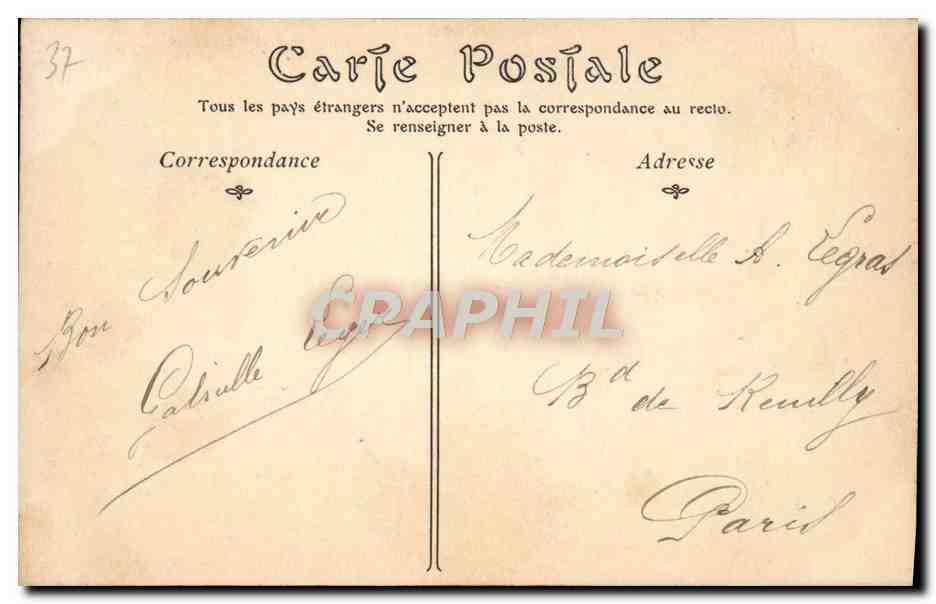 37
Carte Postale
Tous les pays étrangers n'acceptent pas la correspondance au recto.
Se renseigner à la poste.
Correspondance
Adresse
Bon Souvenir
Mademoiselle A. Legras
Bd de Reuilly
Paris
CPAPHIL